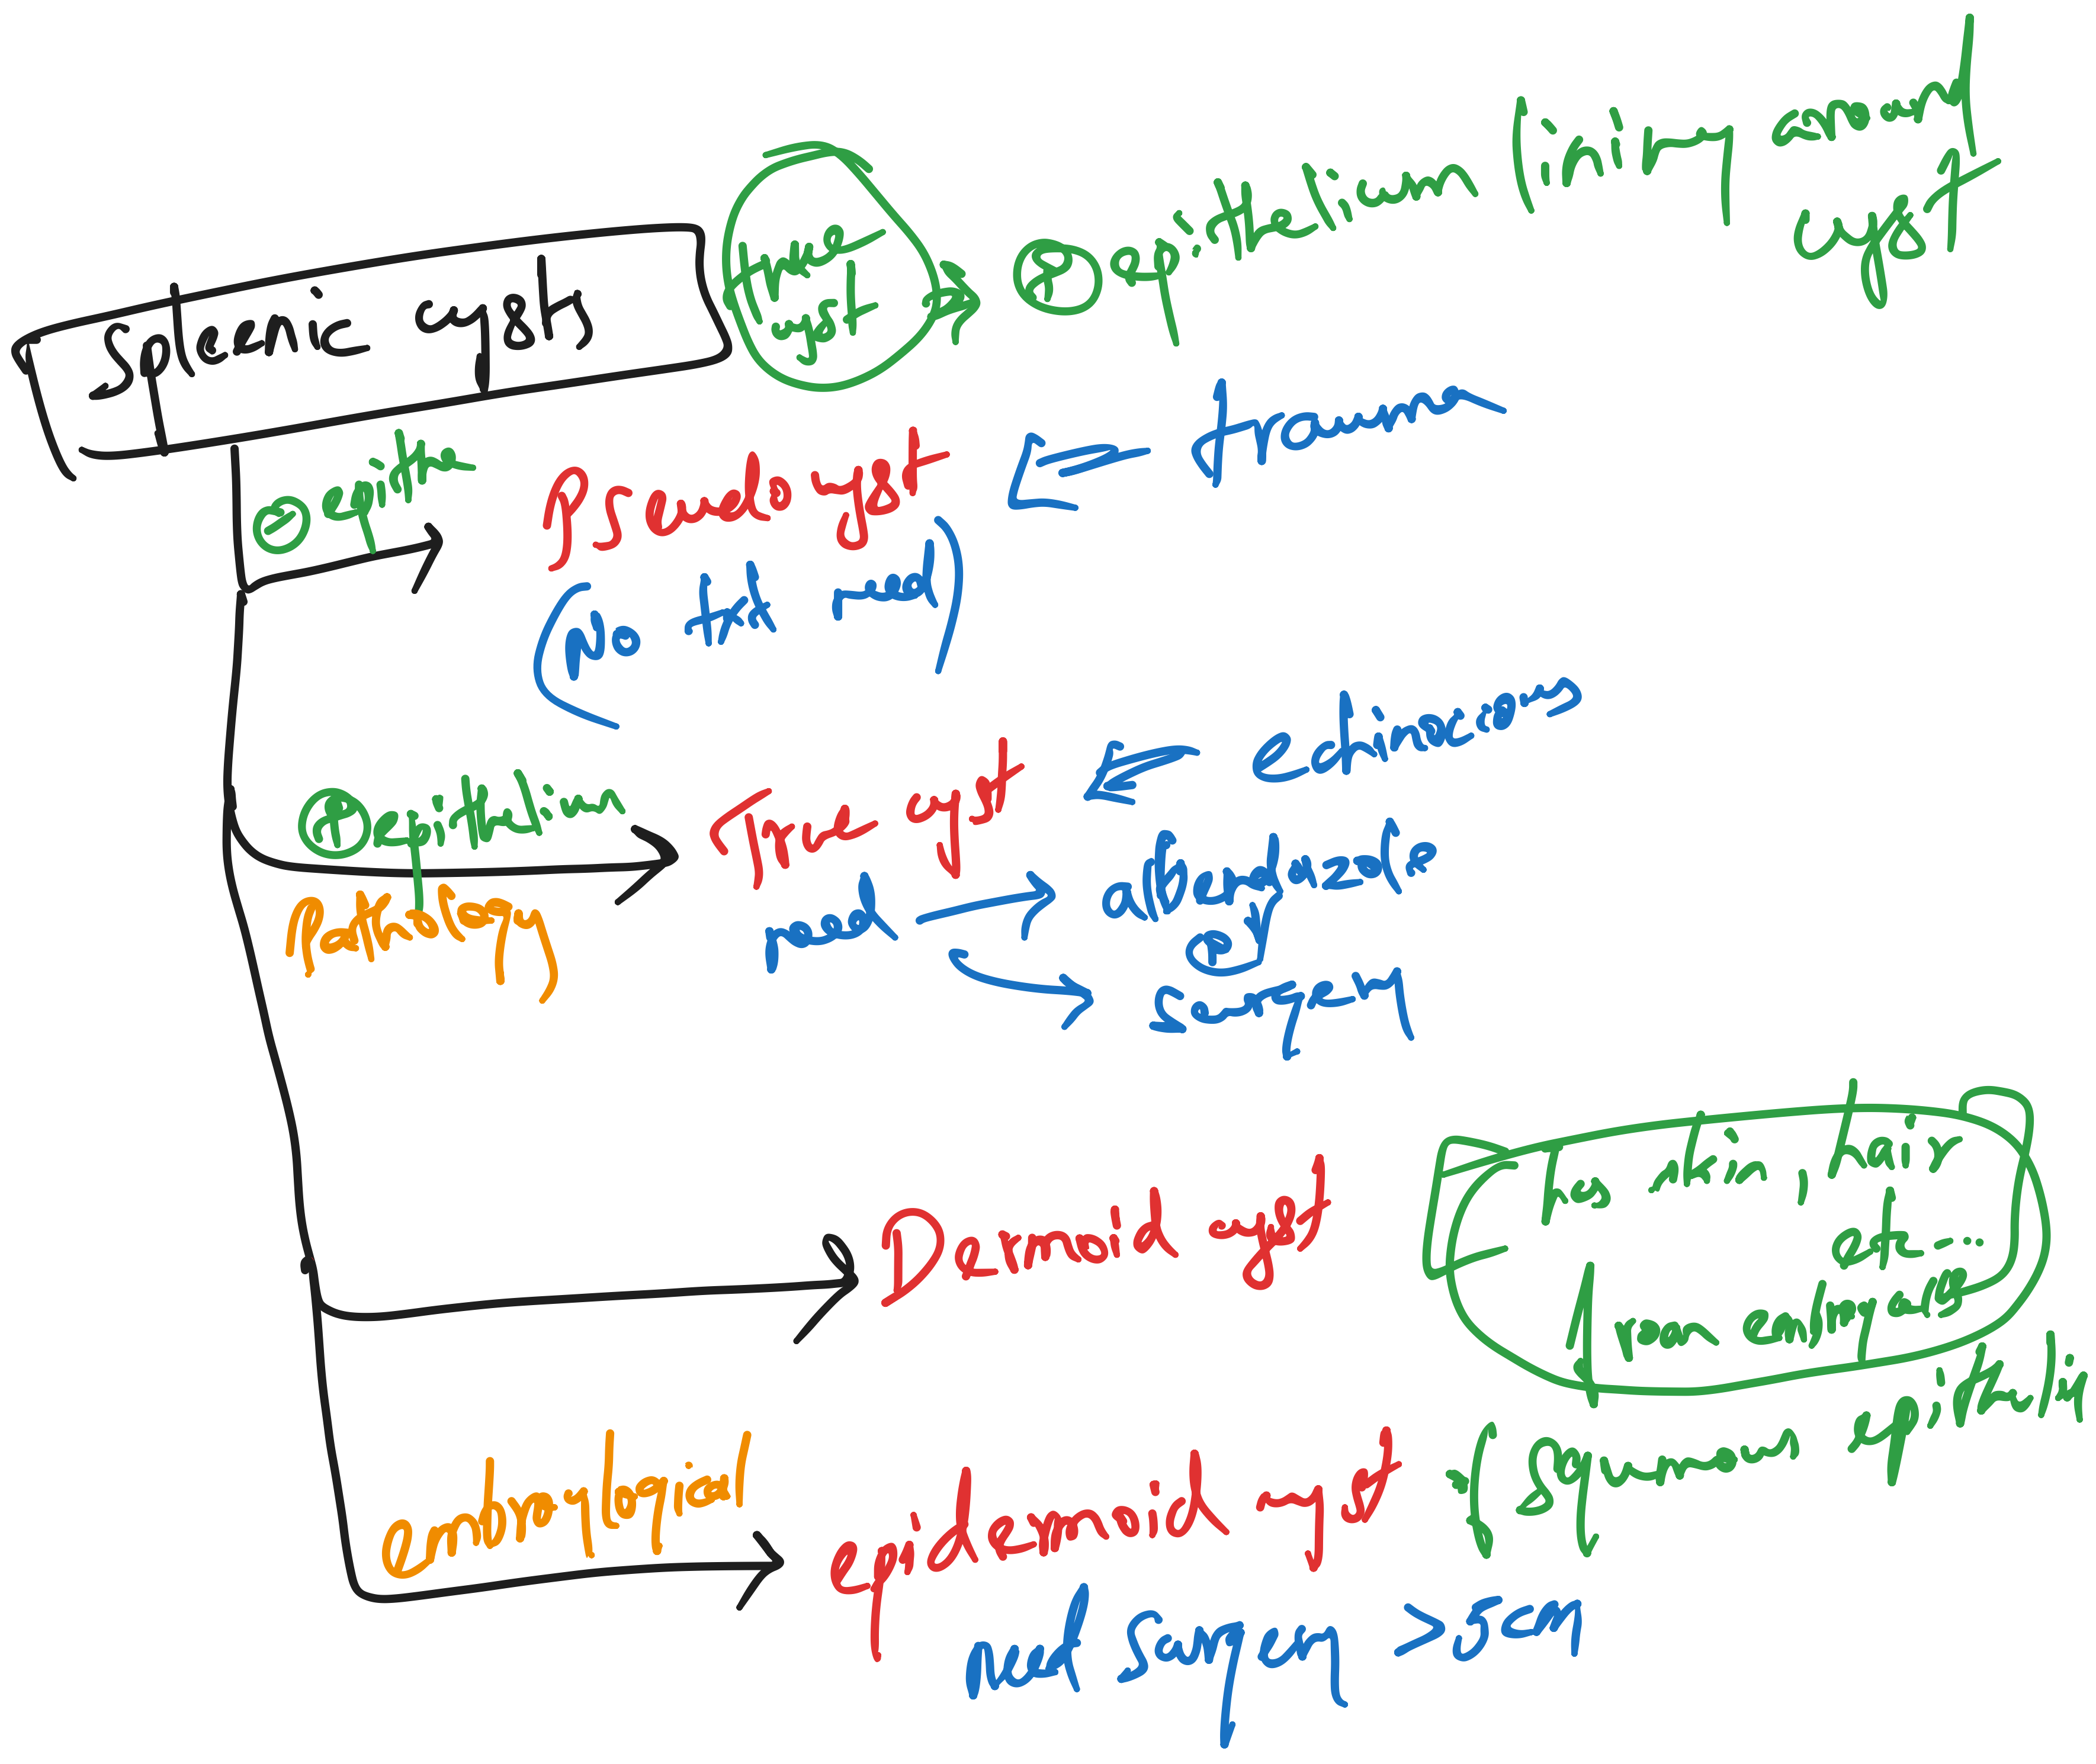 Splenic cysts
true cyst
⊕ epithelium (lining around cyst)
⊖ epithe
Pseudocyst
trauma
(No ttt need)
⊕ epithelium
Pathology
True cyst
need
albendazole
or
surgery
Dermoid cyst
has skin, hair
etc...
embryological
epidermoid cyst
(squamous epitheli
need surgery >5cm